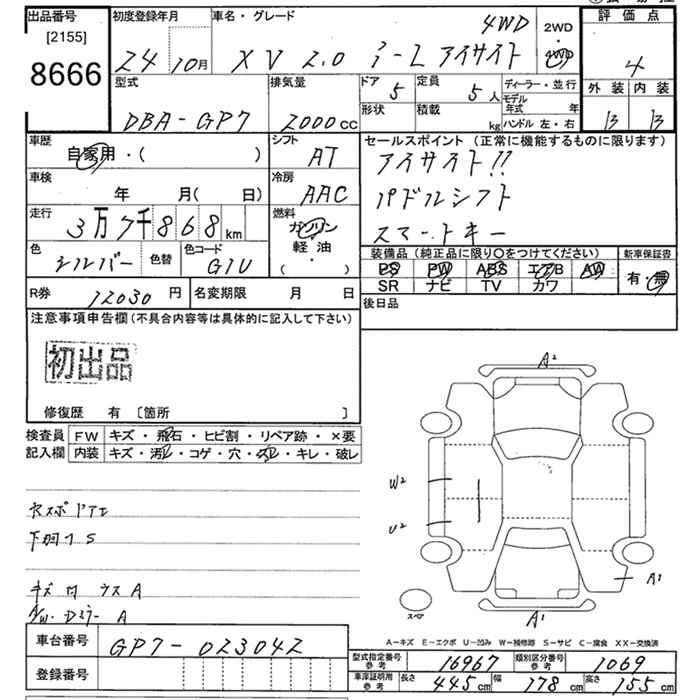 出品番号
[2155]
8666
初度登録年月
24 10月
車名・グレード
4WD
XV 2.0 i-L アイサイト
2WD
4WD
評価点
4
外装 内装
B B
型式
DBA-GP7
排気量
2000cc
ドア 5
形状
定員 5人
積載 kg
ディーラー・並行
モデル年式 年
ハンドル 左・右
車歴
自家用・( )
シフト AT
車検
年 月( 日)
冷房 AAC
走行
3万7千868km
燃料
ガソリン
軽油
( ・ )
色 シルバー
色替
色コード G1U
セールスポイント(正常に機能するものに限ります)
アイサイト!!
パドルシフト
スマートキー
装備品(純正品に限り○をつけてください)
新車保証書
PS PW ABS エアB AW
SR ナビ TV カワ
有・無
R券 12030円
名変期限 月 日
後日品
注意事項申告欄(不具合内容等は具体的に記入して下さい)
初出品
修復歴 有 〔箇所 〕
検査員
記入欄
FW キズ・飛石・ヒビ割・リペア跡・×要
内装 キズ・汚レ・コゲ・穴・スレ・キレ・破レ
下回りS
A2
W2
U2
A1
A1
スペア
A-キズ E-エクボ U-凹み W-補修跡 S-サビ C-腐食 XX-交換済
車台番号 GP7-023042
登録番号
型式指定番号 参考 16967
類別区分番号 参考 1069
車庫証明用 参考 長さ 445cm 幅 178cm 高さ 155cm